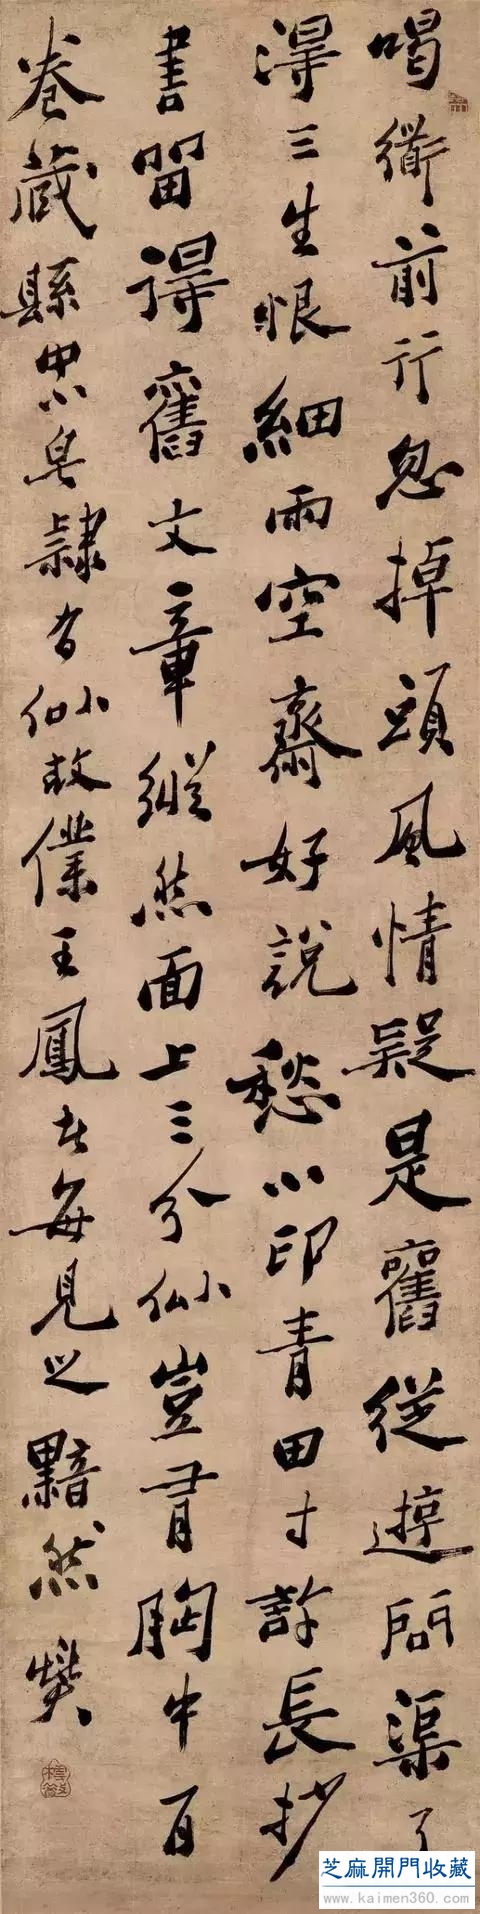 喝衟前行忽掉頭風情疑是舊從遊問渠了
得三生恨細雨空齋好說愁小印青田寸許長抄
書留得舊文章縱然面上三分似豈有胸中百
卷藏縣中皂隸有似故僕王鳳者每見之黯然燮
芝麻開門收藏
www.kaimen360.com